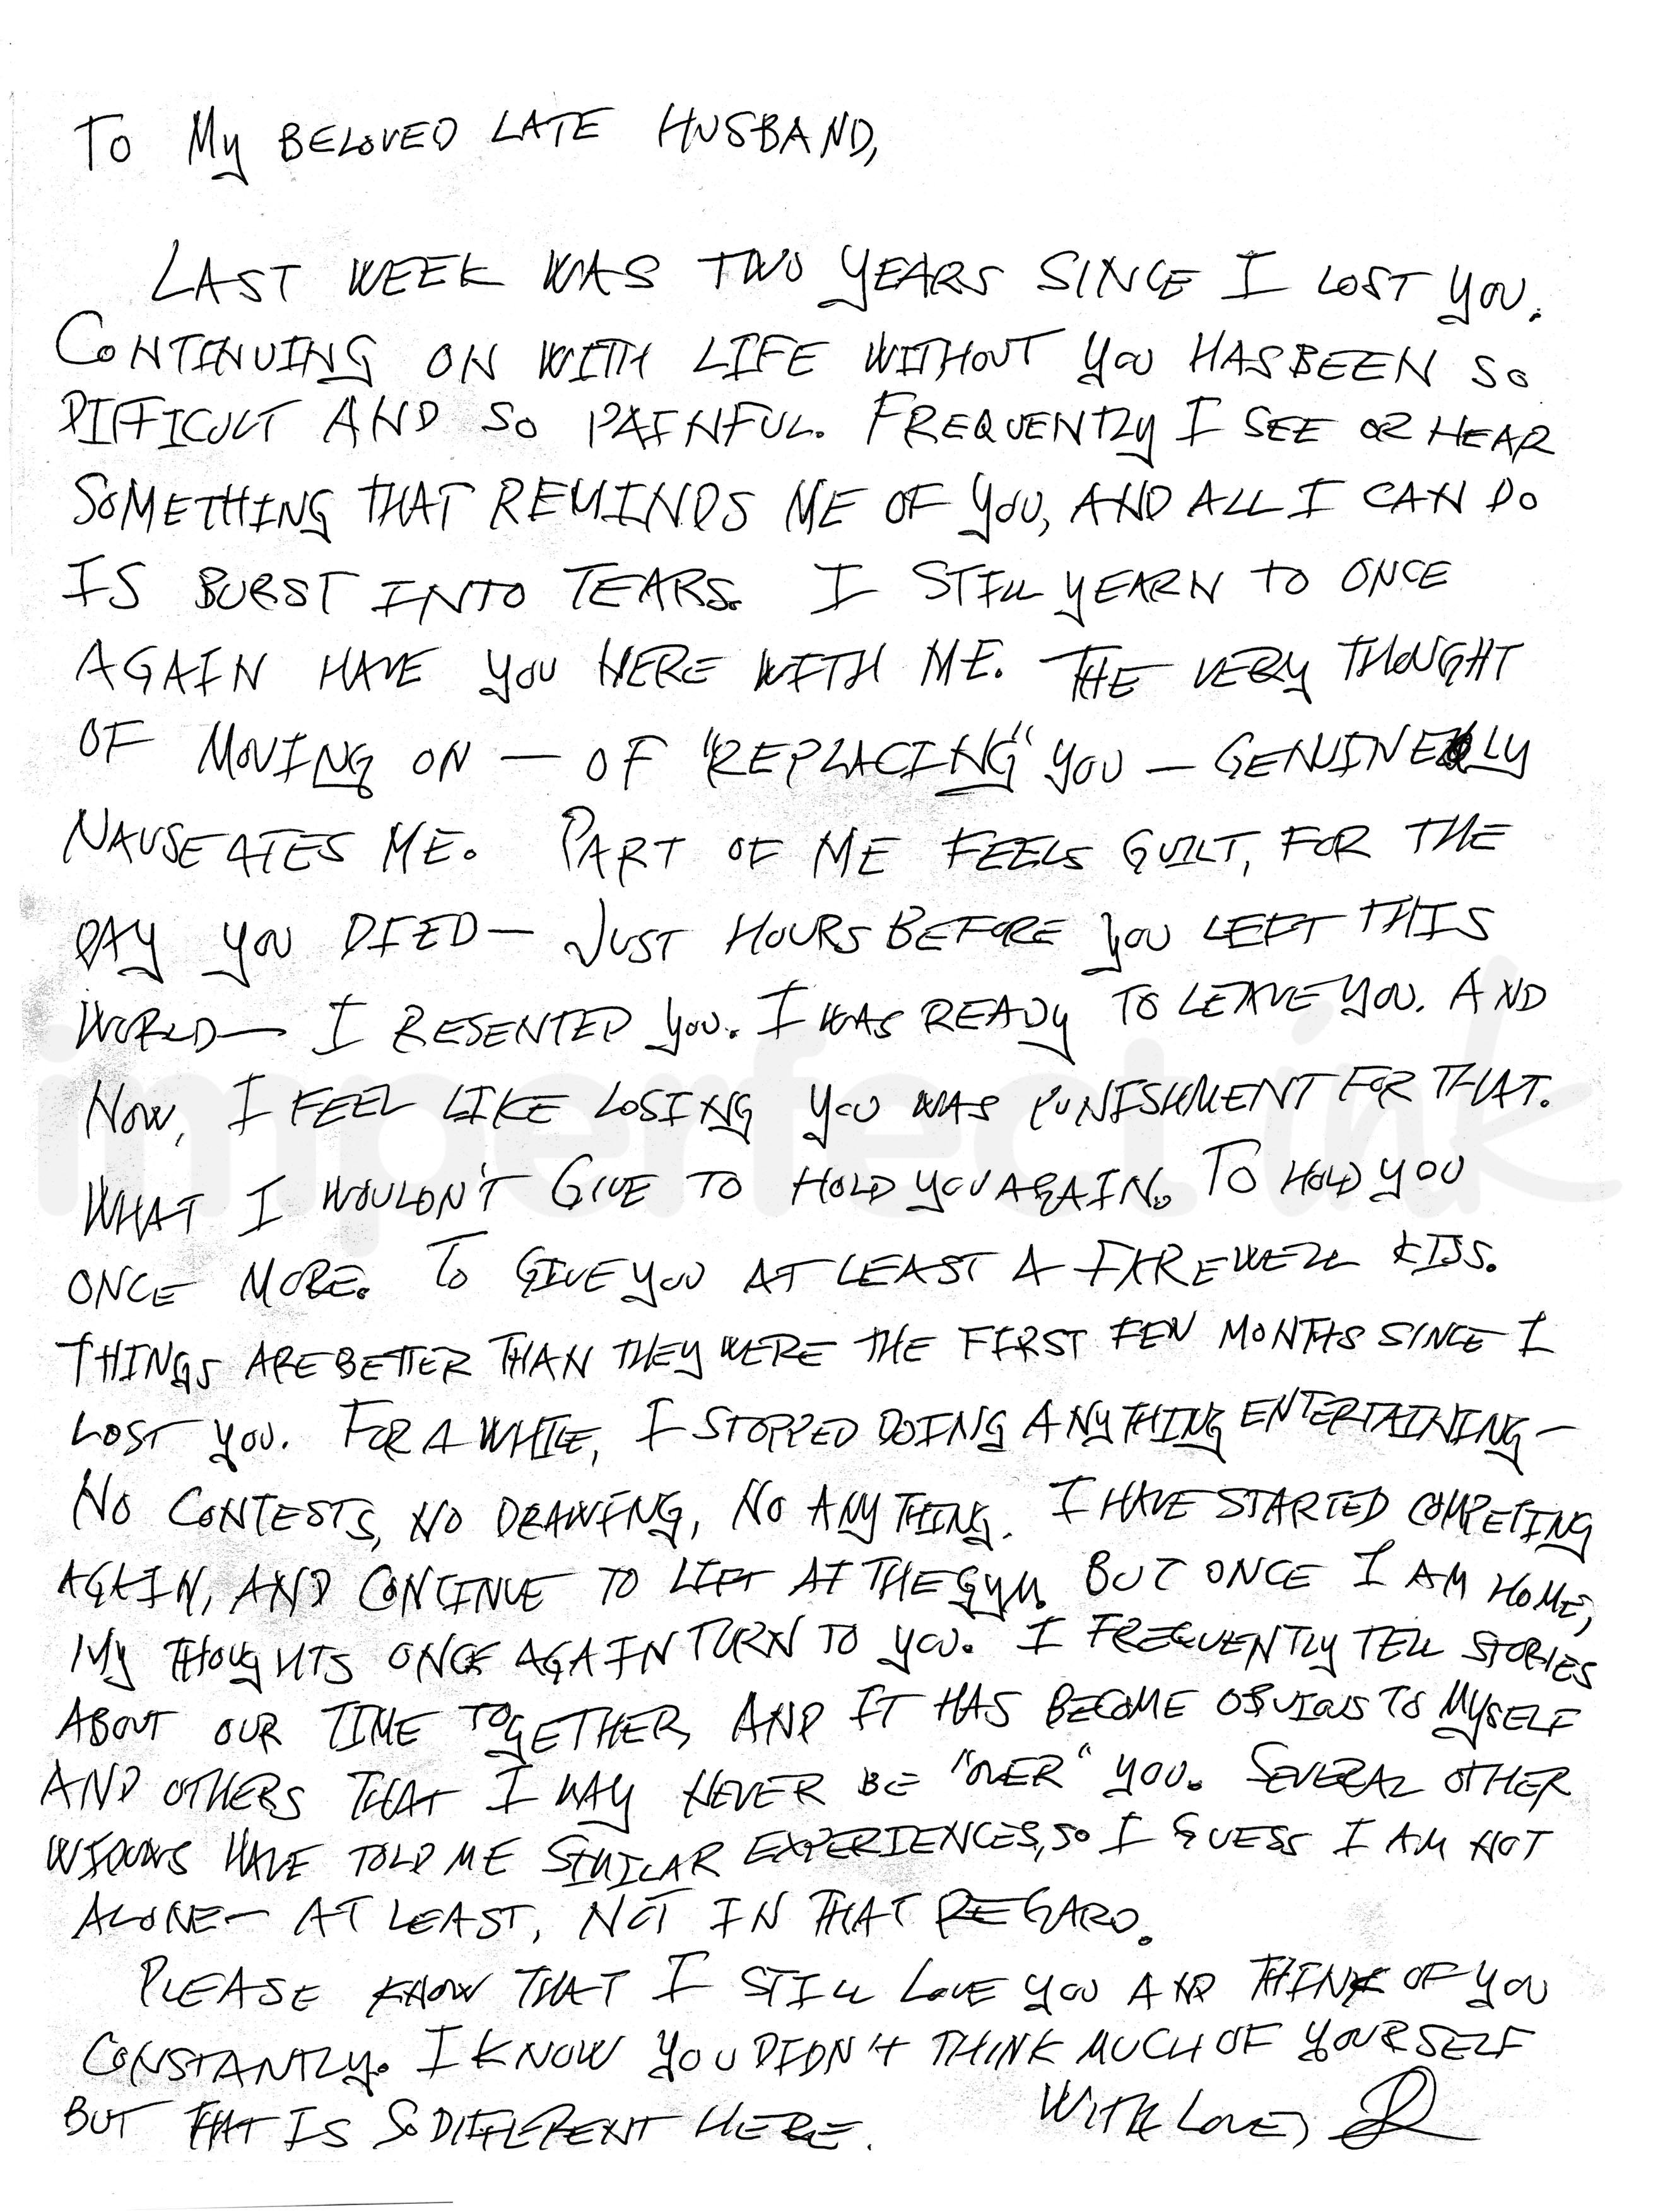 To My BELOVED LATE HUSBAND,
LAST WEEK WAS TWO YEARS SINCE I LOST YOU.
CONTINUING ON WITH LIFE WITHOUT YOU HAS BEEN SO
DIFFICULT AND SO PAINFUL. FREQUENTLY I SEE OR HEAR
SOMETHING THAT REMINDS ME OF YOU, AND ALL I CAN DO
IS BURST INTO TEARS. I STILL YEARN TO ONCE
AGAIN HAVE YOU HERE WITH ME. THE VERY THOUGHT
OF MOVING ON — OF "REPLACING" YOU — GENUINELY
NAUSEATES ME. PART OF ME FEELS GUILT, FOR THE
DAY YOU DIED — JUST HOURS BEFORE YOU LEFT THIS
WORLD — I RESENTED YOU. I WAS READY TO LEAVE YOU. AND
NOW, I FEEL LIKE LOSING YOU WAS PUNISHMENT FOR THAT.
WHAT I WOULDN'T GIVE TO HOLD YOU AGAIN. TO HOLD YOU
ONCE MORE. TO GIVE YOU AT LEAST A FAREWELL KISS.
THINGS ARE BETTER THAN THEY WERE THE FIRST FEW MONTHS SINCE I
LOST YOU. FOR A WHILE, I STOPPED DOING ANYTHING ENTERTAINING —
NO CONTESTS, NO DRAWING, NO ANYTHING. I HAVE STARTED COMPETING
AGAIN, AND CONTINUE TO LIFT AT THE GYM. BUT ONCE I AM HOME,
MY THOUGHTS ONCE AGAIN TURN TO YOU. I FREQUENTLY TELL STORIES
ABOUT OUR TIME TOGETHER, AND IT HAS BECOME OBVIOUS TO MYSELF
AND OTHERS THAT I MAY NEVER BE "OVER" YOU. SEVERAL OTHER
WIDOWS HAVE TOLD ME SIMILAR EXPERIENCES, SO I GUESS I AM NOT
ALONE — AT LEAST, NOT IN THAT REGARD.
PLEASE KNOW THAT I STILL LOVE YOU AND THINK OF YOU
CONSTANTLY. I KNOW YOU DIDN'T THINK MUCH OF YOURSELF
BUT THAT IS SO DIFFERENT HERE. WITH LOVE,
imperfect ink